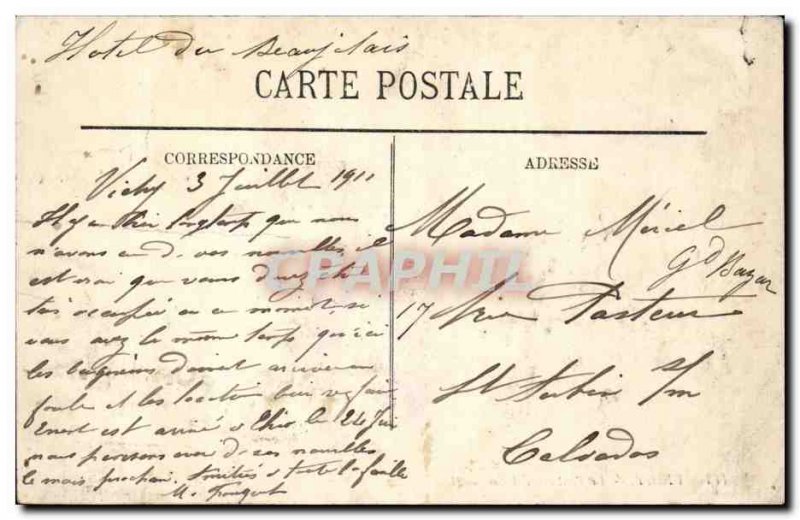 Hotel du Beaujolais
CARTE POSTALE
CORRESPONDANCE
Vichy 3 Juillet 1911
Il y a bien longtemps que nous
n'avons eu de vos nouvelles il
est vrai que vous devez être
très occupée en ce moment, si
vous avez le même temps qu'ici
les baigneurs doivent arriver en
foule et les location bien se faire
est arrivé le 24 Juin
nous pensons avoir de ses nouvelles
le mois prochain. Amitiés à toute la famille
M.
ADRESSE
Madame Mériel
Gd Bazar
17 Rue Pasteur
St Aubin s/m
Calvados
CPAPHIL